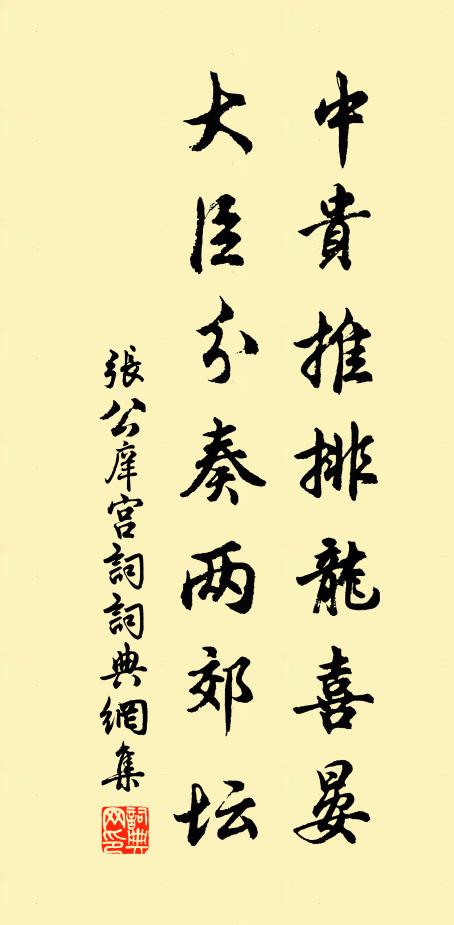 中貴推排龍喜晏
大臣分奏两郊坛
張公庠宫詞詞典網集
詞典网印